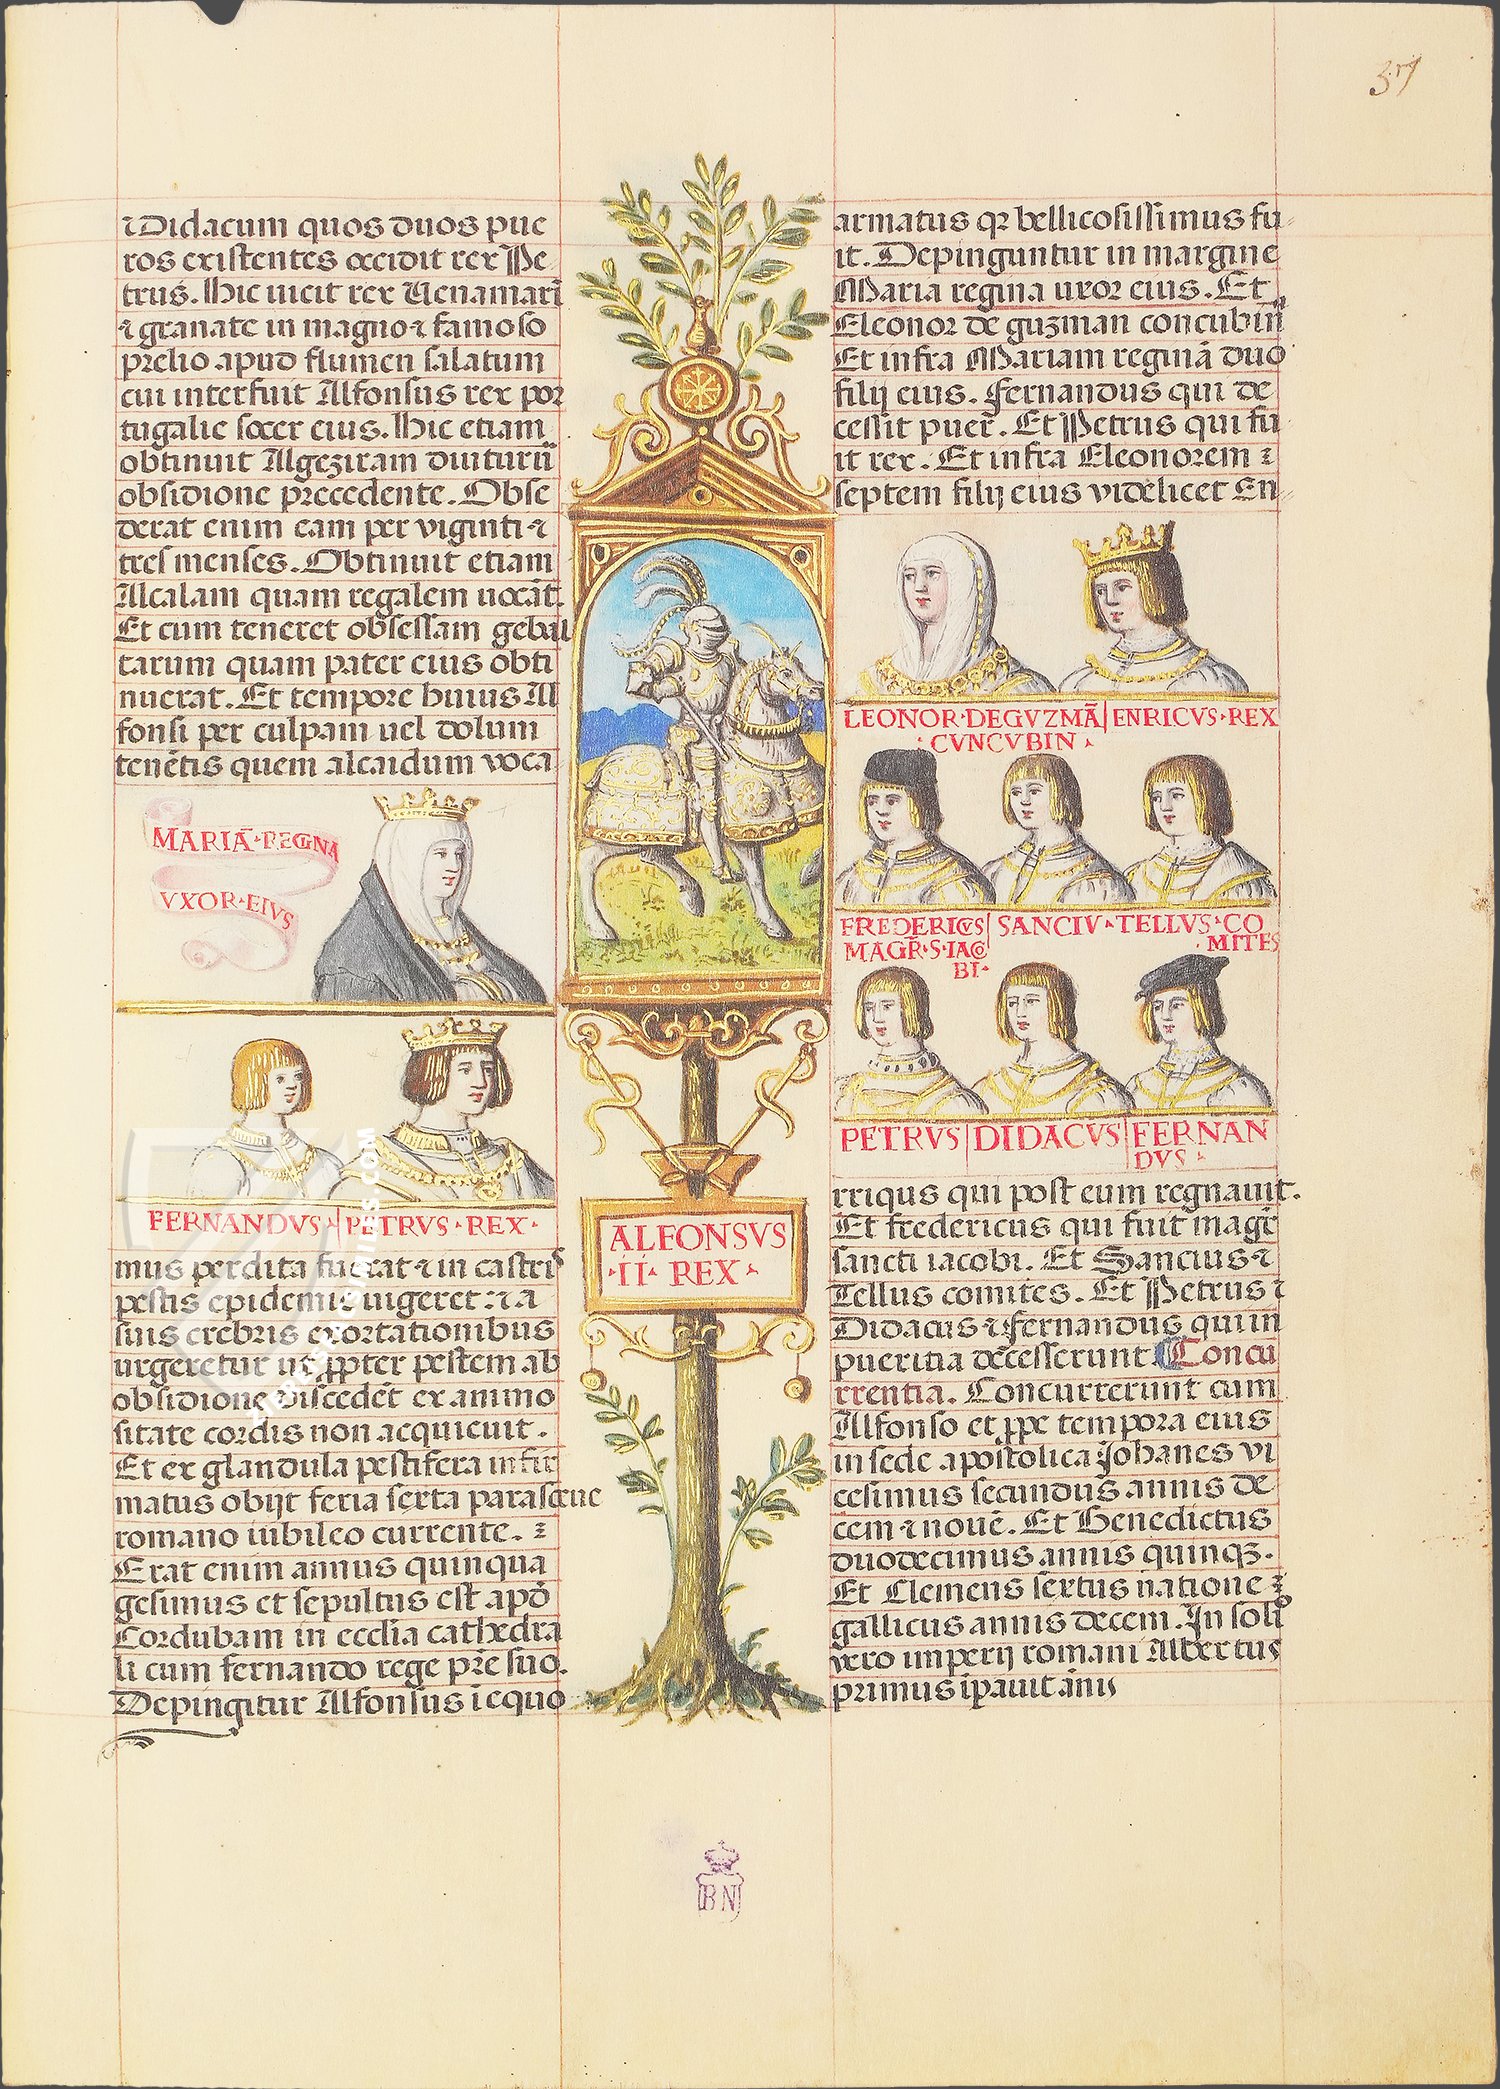 37
⁊ Didacum quos duos pue
ros existentes occidit rex Pe
trus. Hic uicit rex Uenamarī
⁊ granate in magno ⁊ famoso
prelio apud flumen salatum
cui interfuit Alfonsus rex por
tugalie socer eius. Hic etiam
obtinuit Algeziram diuturn̄
obsidione precedente. Obse
derat enim eam per viginti ⁊
tres menses. Obtinuit etiam
Alcalam quam regalem uocāt.
Et cum teneret obsessam gebal
tarum quam pater eius obti
nuerat. Et tempore huius Al
fonsi per culpam uel dolum
tenētis quem alcaidum voca
MARIĀ·REGNA
VXOR·EIVS
FERNANDVS· PETRVS·REX·
mus perdita fuerat ⁊ in castris
pestis epidemie uigeret: ⁊ a
suis crebris exortationibus
urgeretur ut ꝓpter pestem ab
obsidione discedēt ex animo
sitate cordis non acquieuit.
Et ex glandula pestifera infir
matus obijt feria sexta parasceue
romano iubileo currente.
Erat enim annus quinqua
gesimus et sepultus est apō
Cordubam in ecclia cathedra
li cum fernando rege pr̄e suo.
Depingitur Alfonsus ī equo
ALFONSVS
·II· REX·
armatus qꝛ bellicosissimus fu
it. Depinguntur in margine
Maria regina uxor eius. Et
Eleonor de guzman concubin̄
Et infra Mariam reginā duo
filij eius. Fernandus qui de
cessit puer. Et Petrus qui fu
it rex. Et infra Eleonorem
septem filij eius videlicet En
LEONOR·DEGVZMĀ ENRICVS·REX
·CVNCVBIN·
FREDERICVS SANCIV·TELLVS·CO
MAGR̄·S·IACO ·MITES
BI·
PETRVS DIDACVS FERNAN
DVS·
rriqus qui post eum regnauit.
Et fredericus qui fuit magr̄
sancti iacobi. Et Sancius ⁊
Tellus comites. Et Petrus ⁊
Didacus ⁊ Fernandus qui in
pueritia decesserunt. Concu
rrentia. Concurrerunt cum
Alfonso et ꝓpe tempora eius
in sede apostolica Johanes vi
cesimus secundus annis de
cem ⁊ nouē. Et Benedictus
duodecimus annis quinqꝫ.
Et Clemens sextus natione
gallicus annis decem. In soli
vero imperij romani Albertus
primus īpauit ānis
BN